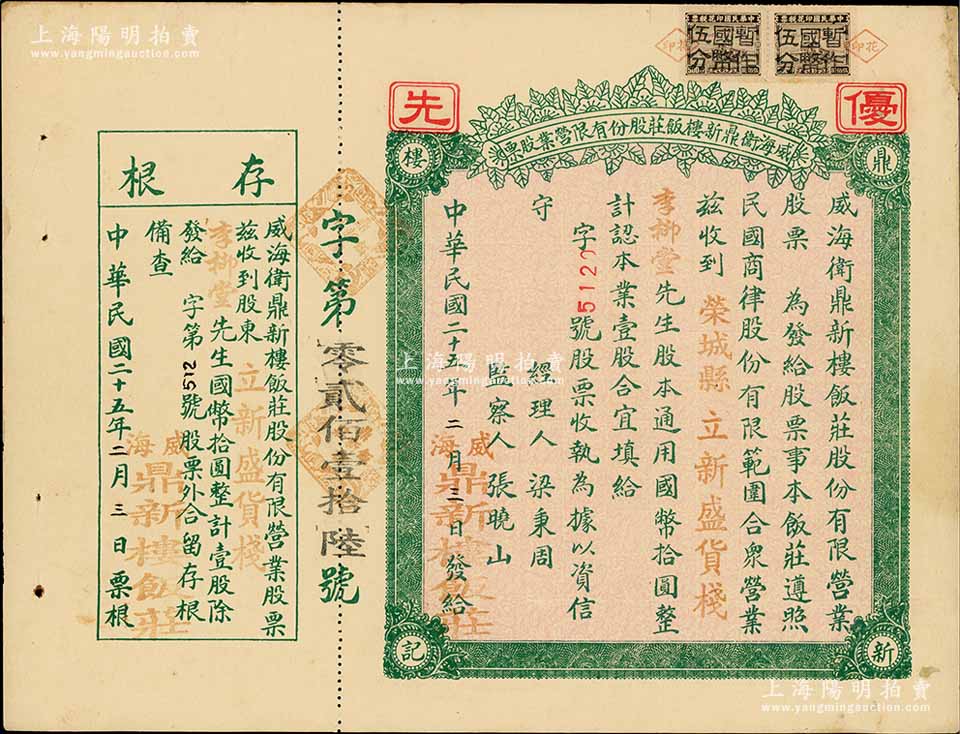 上海陽明拍賣
www.yangmingauction.com
中華民國印花稅票
暫作
國幣
伍分
中華民國印花稅票
暫作
國幣
伍分
花
印
花
印
優先
威海衛鼎新樓飯莊股份有限營業股票
鼎
新
樓
記
威海衛鼎新樓飯莊股份有限營業
股票　為發給股票事本飯莊遵照
民國商律股份有限範圍合衆營業
茲收到　榮城縣　立新盛貨棧
李柳堂先生股本通用國幣拾圓整
計認本業壹股合宜填給
字　512　號股票收執為據以資信
守　經理人　梁秉周
監察人　張曉山
中華民國二十五年　二　月　三　日　發給
威海
鼎新樓飯莊
字第零貳佰壹拾陸號
存根
威海衛鼎新樓飯莊股份有限營業股票
茲收到股東　立新盛貨棧
李柳堂　先生國幣拾圓整計壹股除
發給　字第　512　號股票外合留存根
備查
中華民國二十五年二月　三　日　票根
威海
鼎新樓飯莊
上海陽明拍賣
www.yangmingauction.com
上海陽明拍賣
www.yangmingauction.com